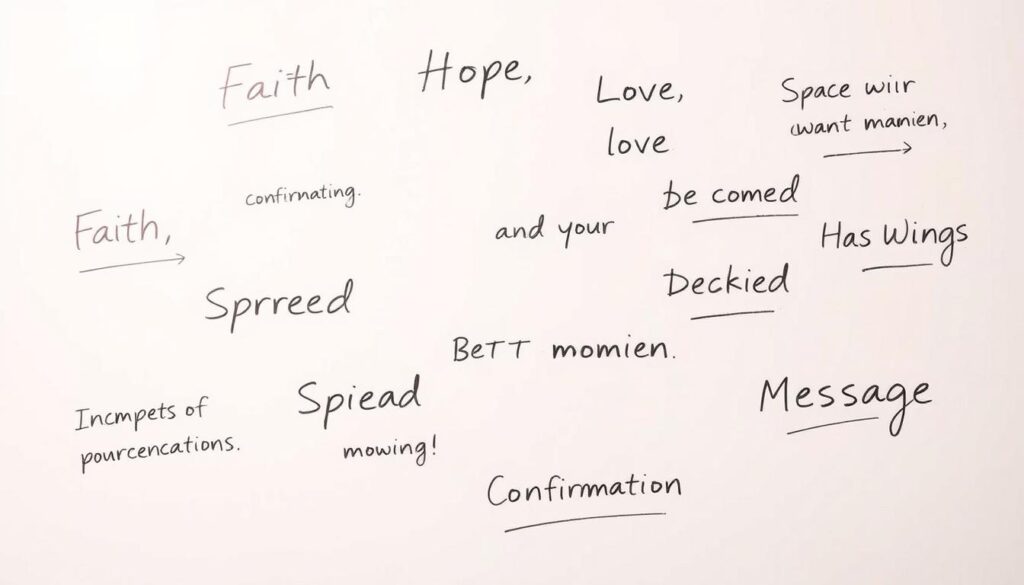 Faith
Hope,
Love,
love
Space wiir
want manien,
confirmating.
be comed
Faith,
and your
Has Wings
Deckied
Sprreed
BeTT momien.
Spiead
Message
Incmpets of
pourcencations.
mowing!
Confirmation